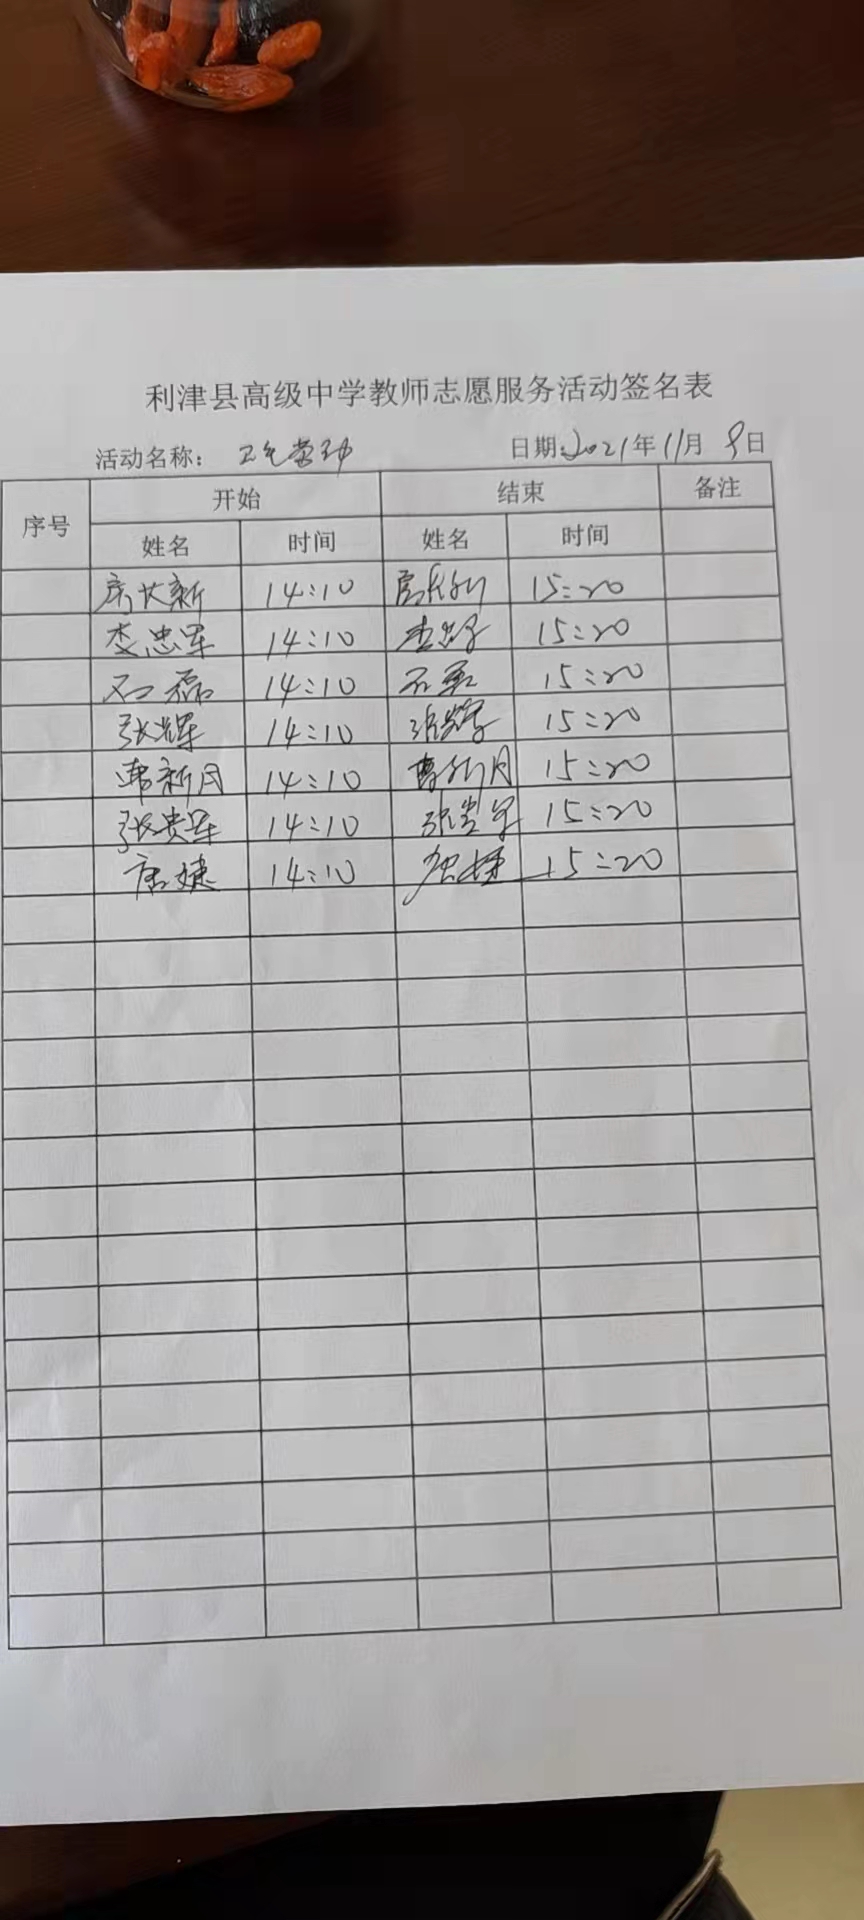 利津县高级中学教师志愿服务活动签名表
活动名称： 卫生劳动 日期：2021年11月9日
序号 开始 结束 备注
姓名 时间 姓名 时间
14:10 15:20
李忠军 14:10 李忠军 15:20
石磊 14:10 石磊 15:20
张辉 14:10 张辉 15:20
14:10 15:20
张贵军 14:10 张贵军 15:20
唐婕 14:10 15:20